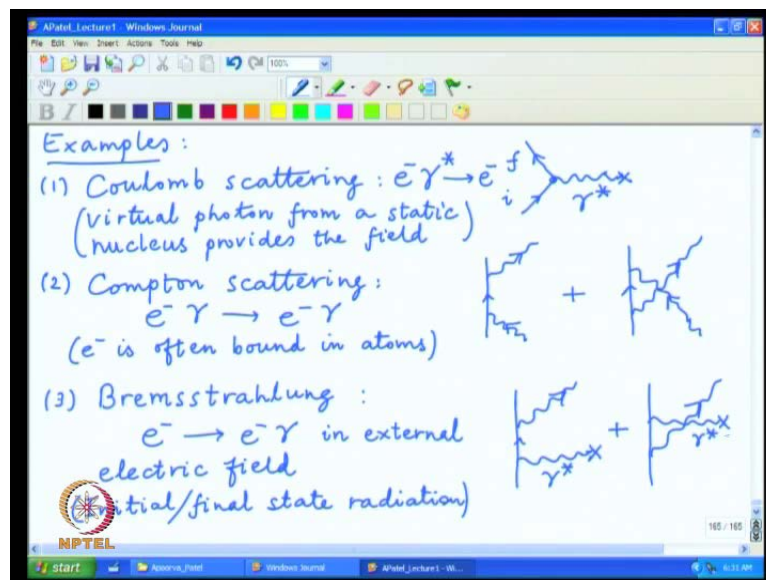 APatel_Lecture1 - Windows Journal
File Edit View Insert Actions Tools Help
100%
B I
Examples :
(1) Coulomb scattering : e⁻ γ* → e⁻
f
i
γ*
(virtual photon from a static
nucleus provides the field)
(2) Compton scattering :
e⁻ γ → e⁻ γ
+
(e⁻ is often bound in atoms)
(3) Bremsstrahlung :
e⁻ → e⁻ γ in external
electric field
γ*
+
γ*
(initial/final state radiation)
165 / 165
NPTEL
start
Apoorva_Patel
Windows Journal
APatel_Lecture1 - Wi...
6:31 AM